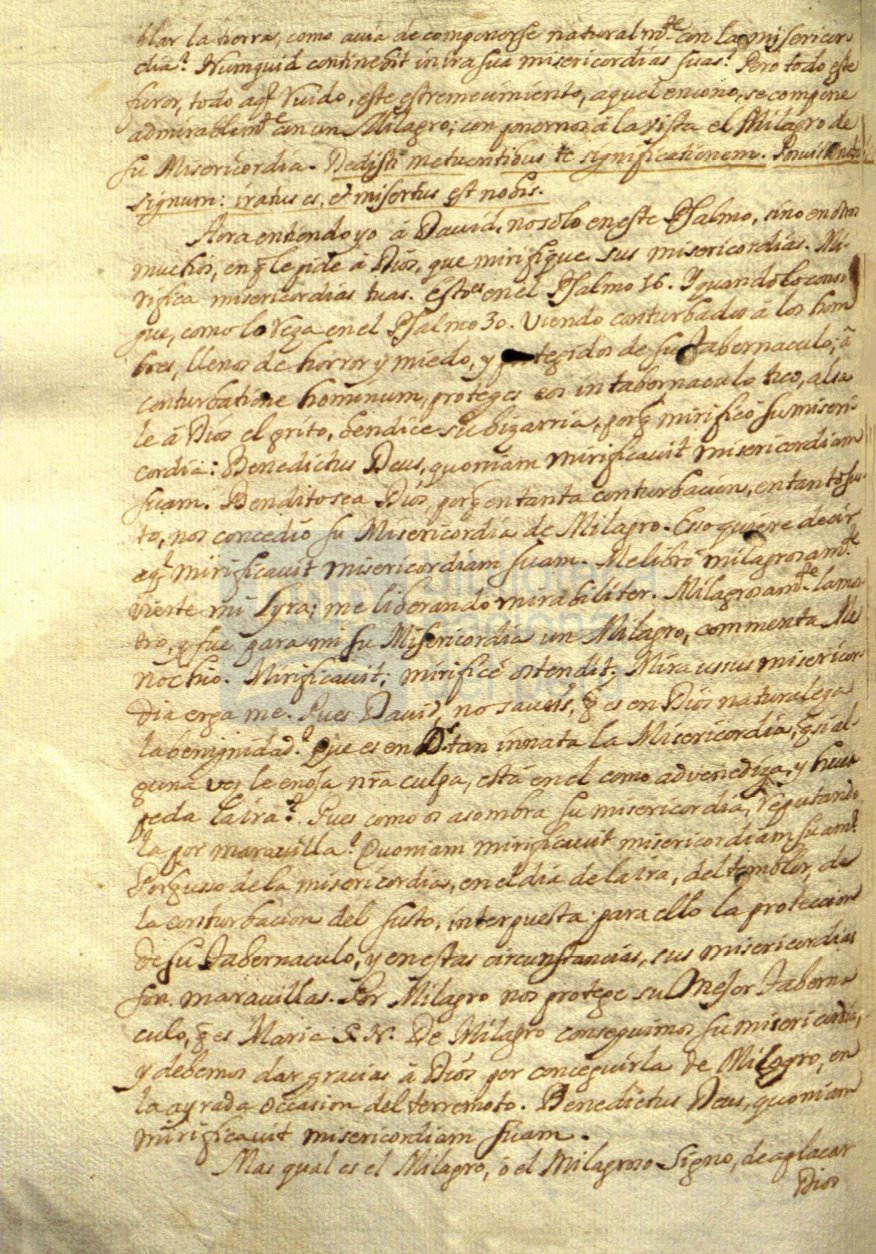 blar la tierra, como avia de componerse naturalmte. con la misericor-
dia? Numquid continebit in ira sua misericordias suas? Pero todo este
furor, todo aql. ruido, este estremecimiento, aquel encono, se compone
admirablemte. con un Milagro; con ponernos á la vista el Milagro de
su Misericordia. Dedisti metuentibus te significationem.
signum: iratus es, et misertus est nobis.
Aora entiendo yo á David, no solo en este Psalmo, sino en otros
muchos, en q̃ le pide á Dios, que mirifique sus misericordias. Mi-
rifica misericordias tuas. esto es en el Psalmo 16. Y quando lo consi-
gue, como lo reza en el Psalmo 30. Viendo conturbados á los hom
bres, llenos de horror y miedo, y protegidos de su Tabernaculo; á
conturbatione hominum, proteges eos in tabernaculo tuo, alsa
le á Dios el grito, bendice su bizarria, porq̃ mirificó su miseri-
cordia: Benedictus Deus, quoniam mirificavit misericordiam
suam. Bendito sea Dios porq̃ en tanta conturbacion, en tanto sus-
to, nos concedió su Misericordia de Milagro. Eso quiere decir
aql. mirificavit misericordiam suam. Me libró milagrosamte.
vierte mi Lyra; me liberando mirabiliter. Milagrosamte. la mos
tro, y fue para mi su Misericordia un Milagro, commenta Me
nochio. Mirificavit; mirificé ostendit. Mira usus misericor
dia erga me. Pues David, no saveis, q̃ es en Dios naturaleza
la benignidad? Que es en Ds. tan innata la Misericordia, q̃ si al-
guna vez le enoja nra culpa, está en el como advenediza, y hues
peda la ira? Pues como os asombra su misericordia, reputando
la por maravilla? Quoniam mirificavit misericordiam suam?
Porq̃ usso de la misericordia, en el dia de la ira, del temblor, de
la conturbacion del susto, interpuesta para ello la proteccion
de su Tabernaculo, y en estas circunstancias, sus misericordias
son maravillas. Por Milagro nos protege su Mejor Taberna
culo, q̃ es Maria S. N. De Milagro conseguimos su misericordia,
y debemos dar gracias á Dios por conceguirla de Milagro, en
la ayrada occasion del terremoto. Benedictus Deus, quoniam
mirificavit misericordiam suam.
Mas qual es el Milagro, ó el Milagroso Signo, de aplacar
Dios
biblioteca
nacional
del perú